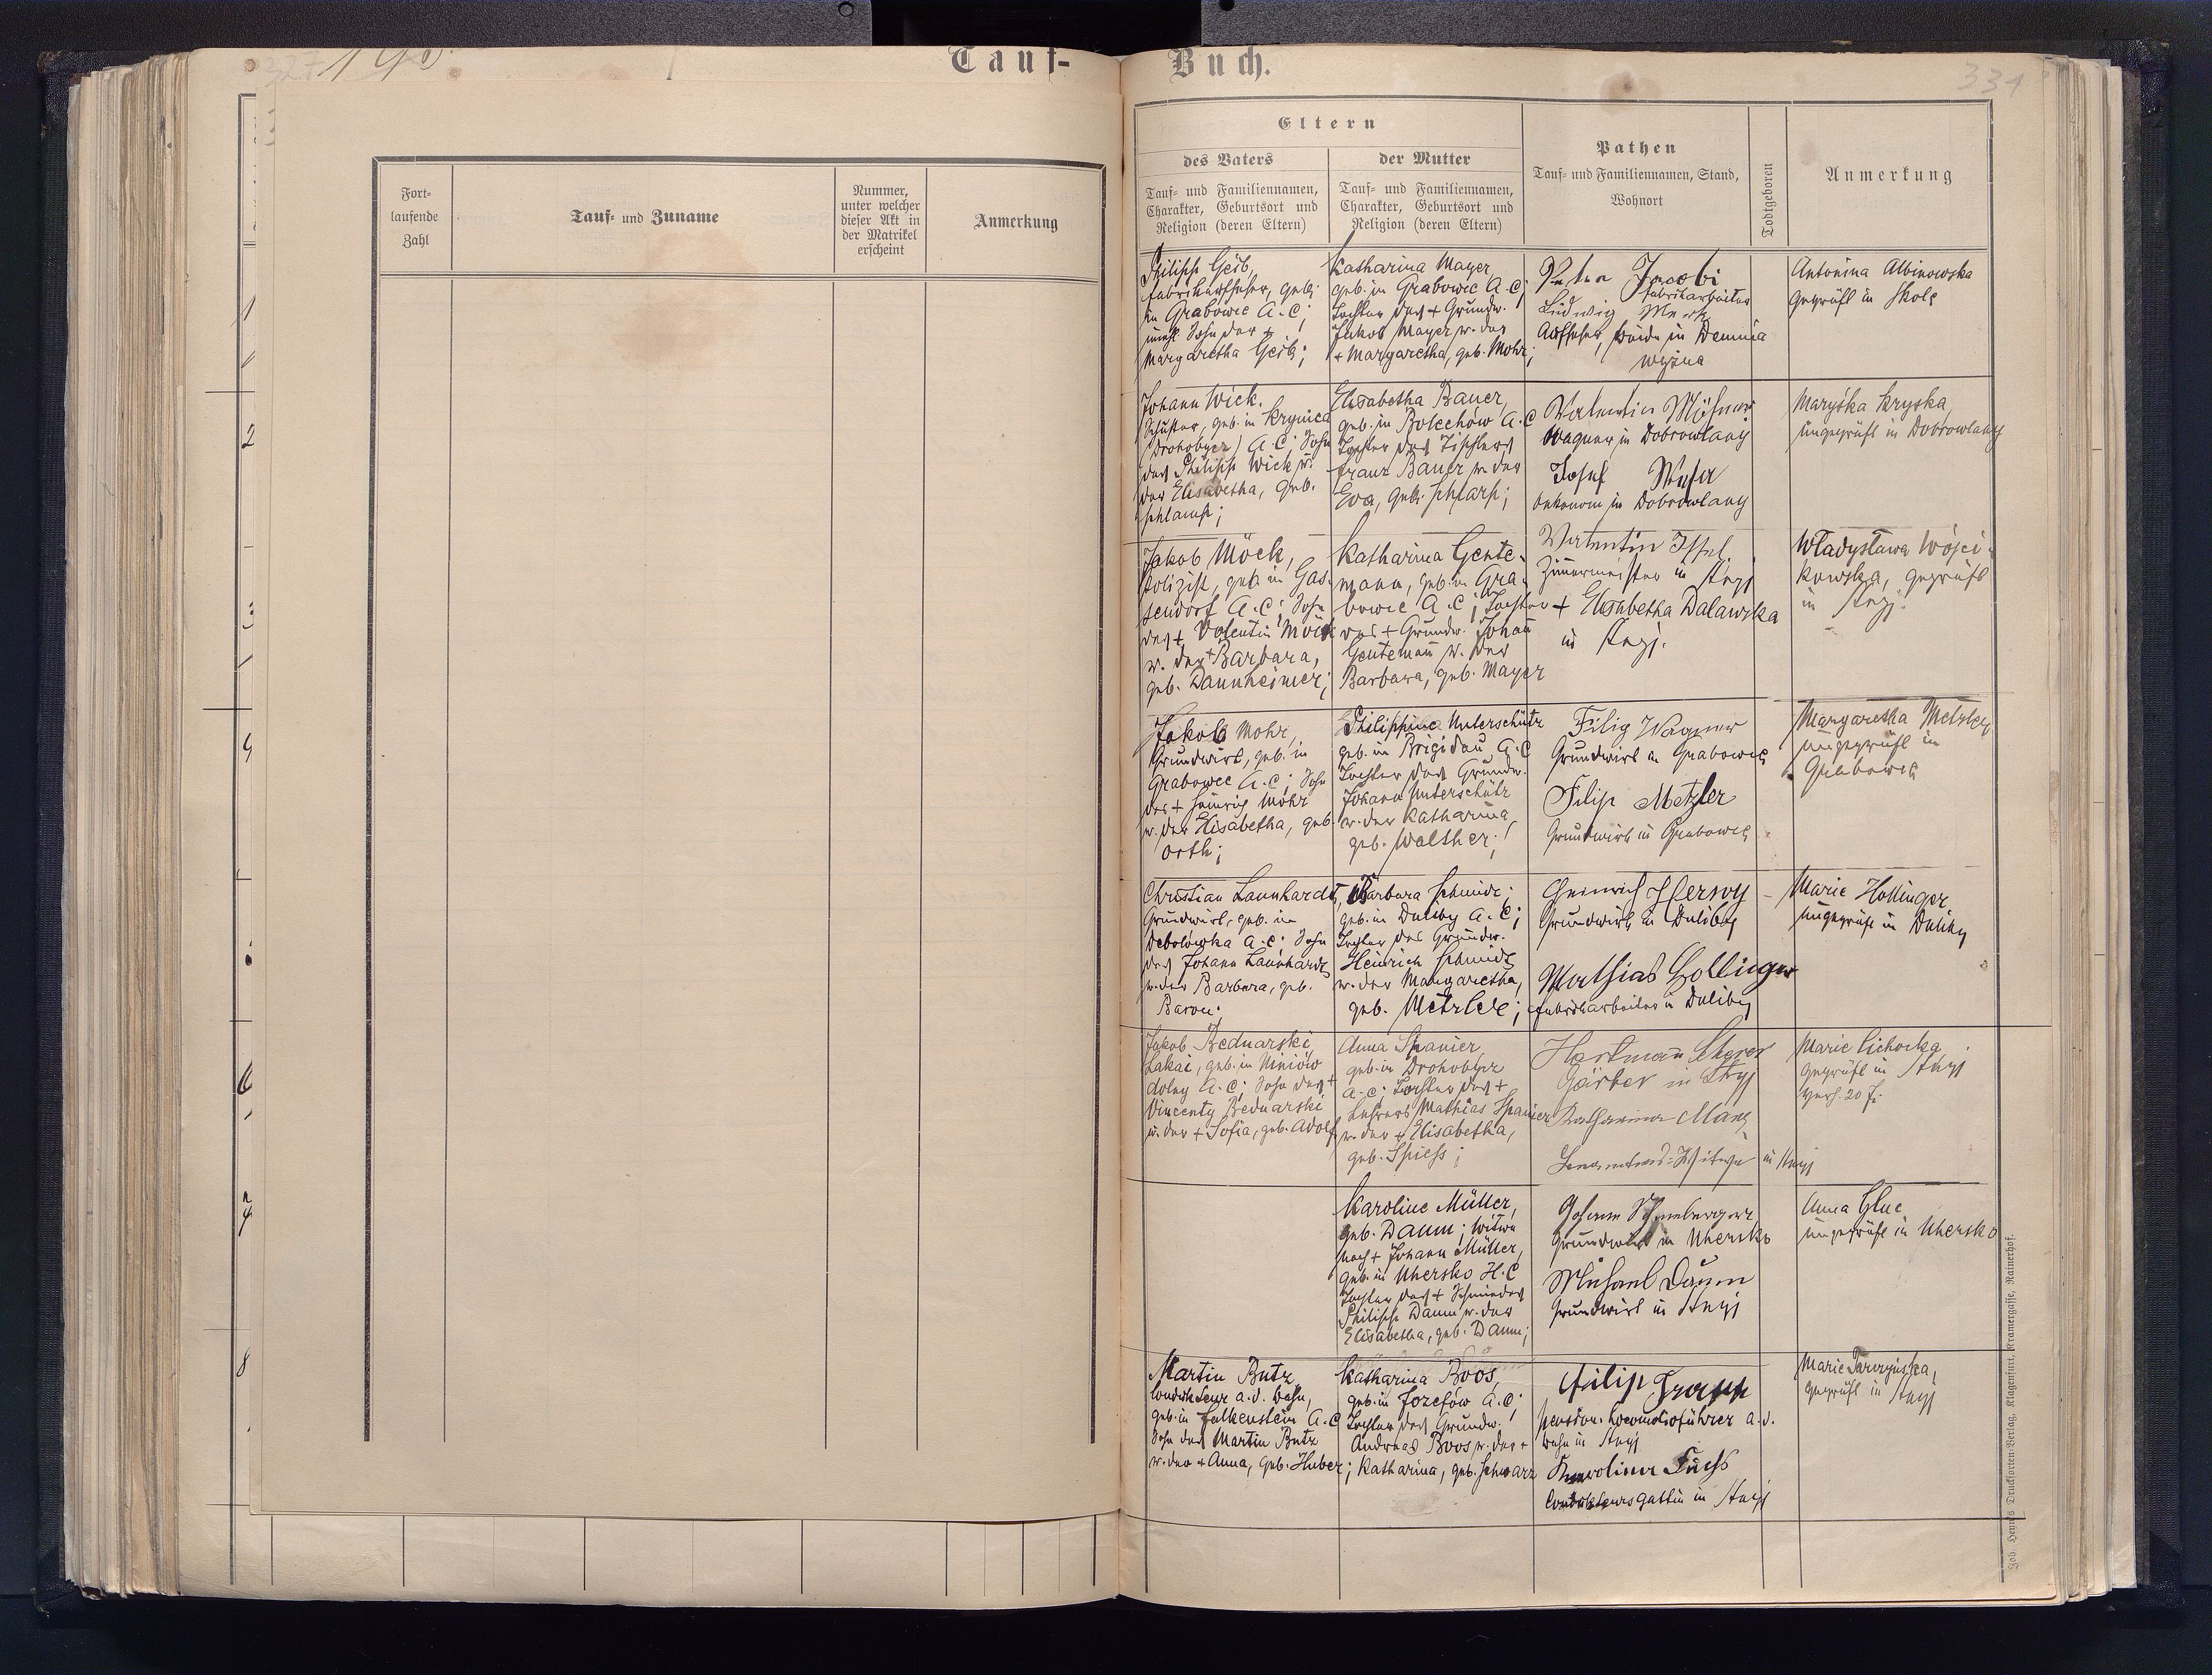 Tauf-
Buch.
331
Fort-
laufende
Zahl
Tauf- und Zuname
Nummer,
unter welcher
dieser Akt in
der Matrikel
erscheint
Anmerkung
1
2
3
4
6
7
8
Eltern
des Vaters
Tauf- und Familiennamen,
Charakter, Geburtsort und
Religion (deren Eltern)
der Mutter
Tauf- und Familiennamen,
Charakter, Geburtsort und
Religion (deren Eltern)
Pathen
Tauf- und Familiennamen, Stand,
Wohnort
Todtgeboren
Anmerkung
Philipp Geib,
geb.
in Grabowce A.C;
Sohn der +
Margaretha Geib;
Katharina Mayer,
geb. in Grabowce A.C;
Tochter des + Grundw.
Jakob Mayer u. der
+ Margaretha, geb. Mohr;
Peter Jacobi
Fabriksarbeiter
Ludwig
Aufseher, beide in Demnia
wyżna
Antonina Albinowska
geprüft in Skole
Johann Wick.
Schuster, geb. in Krynica
(Drohobycz) A.C; Sohn
des Philipp Wick u.
der Elisabetha, geb.
Schlamp;
Elisabetha Bauer,
geb. in Bolechów A.C
Tochter des Tischlers
Franz Bauer u. der
Eva, geb. Scharf;
Valentin
Wagner in Dobrowlany
Josef
Oekonom in Dobrowlany
Maryśka Kryska,
ungeprüft in Dobrowlany
Jakob Möck,
Polizist, geb. in Gas-
sendorf A.C; Sohn
des + Valentin Möck
u. der + Barbara,
geb. Dannheimer;
Katharina Gente-
mann, geb. in Gra-
bowce A.C; Tochter
des + Grundw. Johan̄
Genteman̄ u. der
Barbara, geb. Mayer
Valentin Issel,
Zimmermeister in Stryj
+ Elisabetha Dalawska
in Stryj.
Władysława Wójci-
kowska, geprüft
in Stryj.
Jakob Mohr,
Grundwirt, geb. in
Grabowce A.C; Sohn
des + Heinrich Mohr
u. der Elisabetha, geb.
Orth;
Philippine Unterschütz
geb. in Brigidau A.C
Tochter des Grundw.
Johann Unterschütz
u. der Katharina,
geb. Walther;
Filip Wagner
Grundwirt in Grabowce
Filip Metzler
Grundwirt in Grabowce
Margaretha Metzler,
ungeprüft in
Grabowce
Christian Launhardt,
Grundwirt, geb. in
A.C; Sohn
des Johann Launhardt
u. der Barbara, geb.
Baron;
Barbara Schmidt;
geb. in Duliby A.C;
Tochter des Grundw.
Heinrich Schmidt
u. der Margaretha,
geb. Metzler;
Heinrich
Grundwirt in Duliby
Mathias Hollinger
Fabriksarbeiter in Duliby
Marie Hollinger
ungeprüft in Duliby
Jakob Bednarski
Lakai, geb. in Niniów
dolny A.C; Sohn des +
Vincenty Bednarski
u. der + Sofia, geb. Adolf
Anna Spanier
geb. in Drohobycz
A.C; Tochter des +
Lehrers Mathias Spanier
u. der + Elisabetha,
geb. Spiess;
Hartman̄ Scherer
Gärber in Stryj
Katharina Manz
in Stryj
Marie Cichocka
geprüft in Stryj
Karoline Müller,
geb. Daum; Witwe
nach + Johann Müller,
geb. in Uhersko H.C
Tochter des + Schmiedes
Philipp Daum u. der
Elisabetha, geb. Daum;
Johann
Grundwirt in Uhersko
Michael Daum
Grundwirt in Stryj
Anna Gluc
ungeprüft in Uhersko
Martin Butz
Conducteur a.d. Bahn,
geb. in Falkenstein A.C
Sohn des Martin Butz
u. der + Anna, geb. Huber;
Katharina Boos,
geb. in Józefów A.C;
Tochter des Grundw.
Andreas Boos u. der +
Katharina, geb. Schwarz
Filip
pension. Locomotivführer a.d.
Bahn in Stryj
Karolina Fuchs
Conducteursgattin in Stryj
Marie
geprüft in Stryj
Joh. Heyn's Drucksorten-Verlag, Klagenfurt, Kramergasse, Rainerhof.